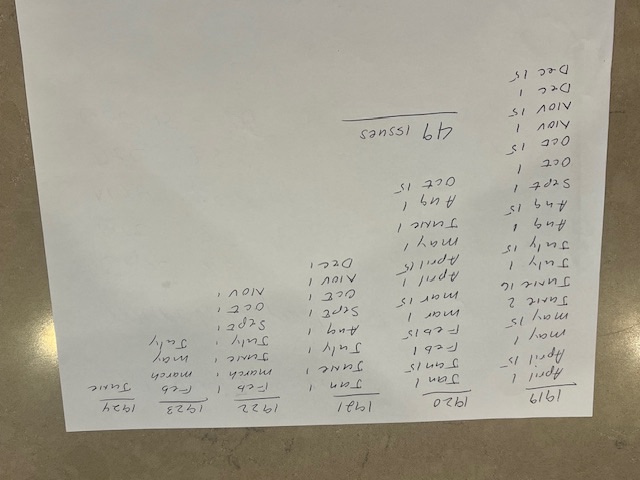 1919
April 1
April 15
may 1
may 15
June 2
June 16
July 1
July 15
Aug 1
Aug 15
Sept 1
Oct 1
Oct 15
Nov 1
Nov 15
Dec 1
Dec 15
1920
Jan 1
Jan 15
Feb 1
Feb 15
mar 1
mar 15
April 1
April 15
may 1
June 1
Aug 1
Oct 15
1921
Jan 1
June 1
July 1
Aug 1
Sept 1
Oct 1
Nov 1
Dec 1
1922
Feb 1
march 1
June 1
July 1
Sept 1
Oct 1
Nov 1
1923
Feb
march
may
July
1924
June
49 issues